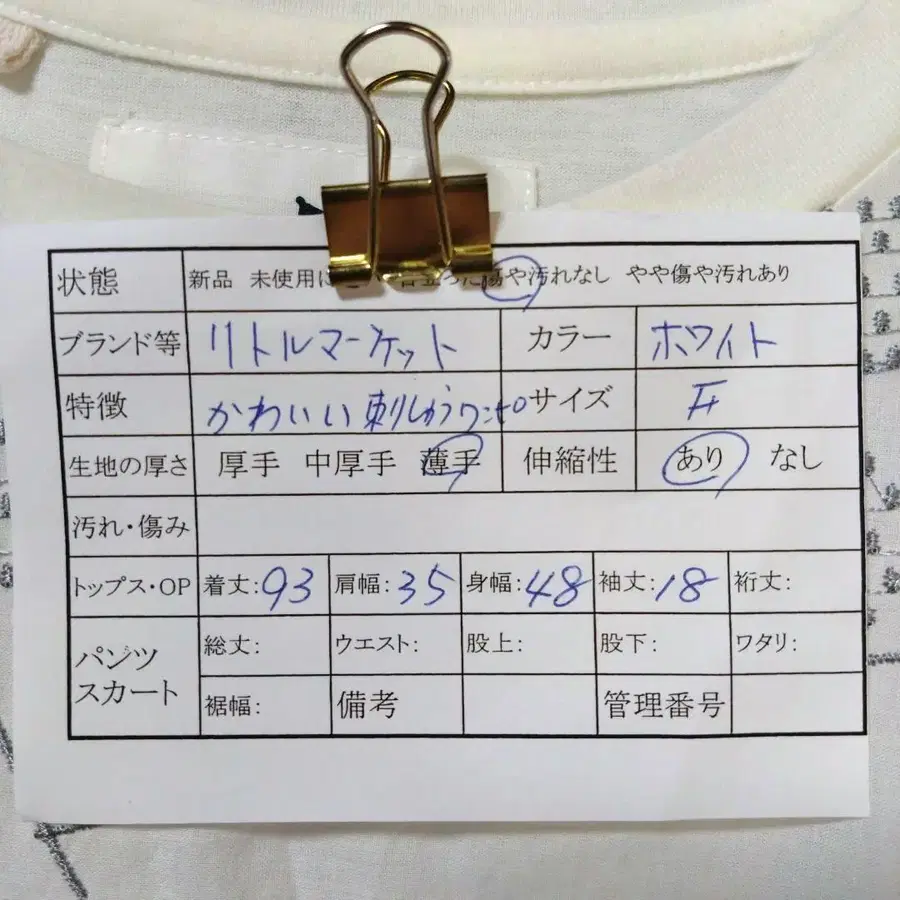 状態 新品 未使用に 目立った傷や汚れなし やや傷や汚れあり
ブランド等 リトルマーケット カラー ホワイト
特徴 かわいい刺しゅうワンピ サイズ F
生地の厚さ 厚手 中厚手 薄手 伸縮性 あり なし
汚れ・傷み
トップス・OP 着丈:93 肩幅:35 身幅:48 袖丈:18 裄丈:
パンツ 総丈: ウエスト: 股上: 股下: ワタリ:
スカート
裾幅: 備考 管理番号